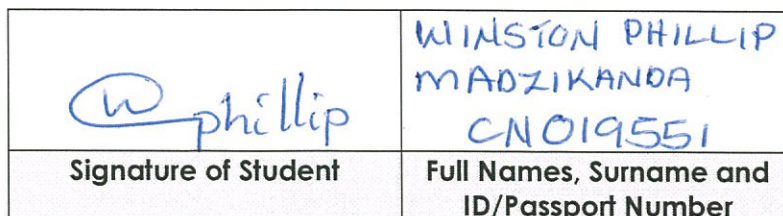 WINSTON PHILLIP
MADZIKANDA
Wphillip
CN019551
Signature of Student
Full Names, Surname and
ID/Passport Number